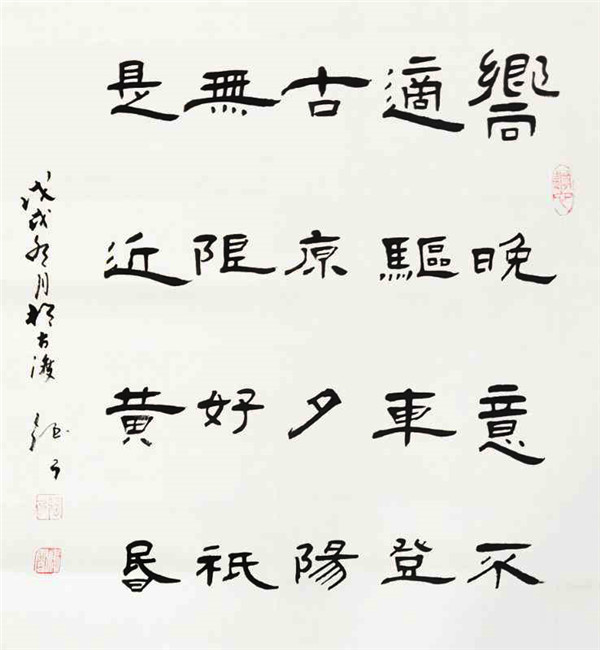 嚮晚意不
適驅車登
古原夕陽
無限好祇
是近黄昏
戊戌冬月於古渡